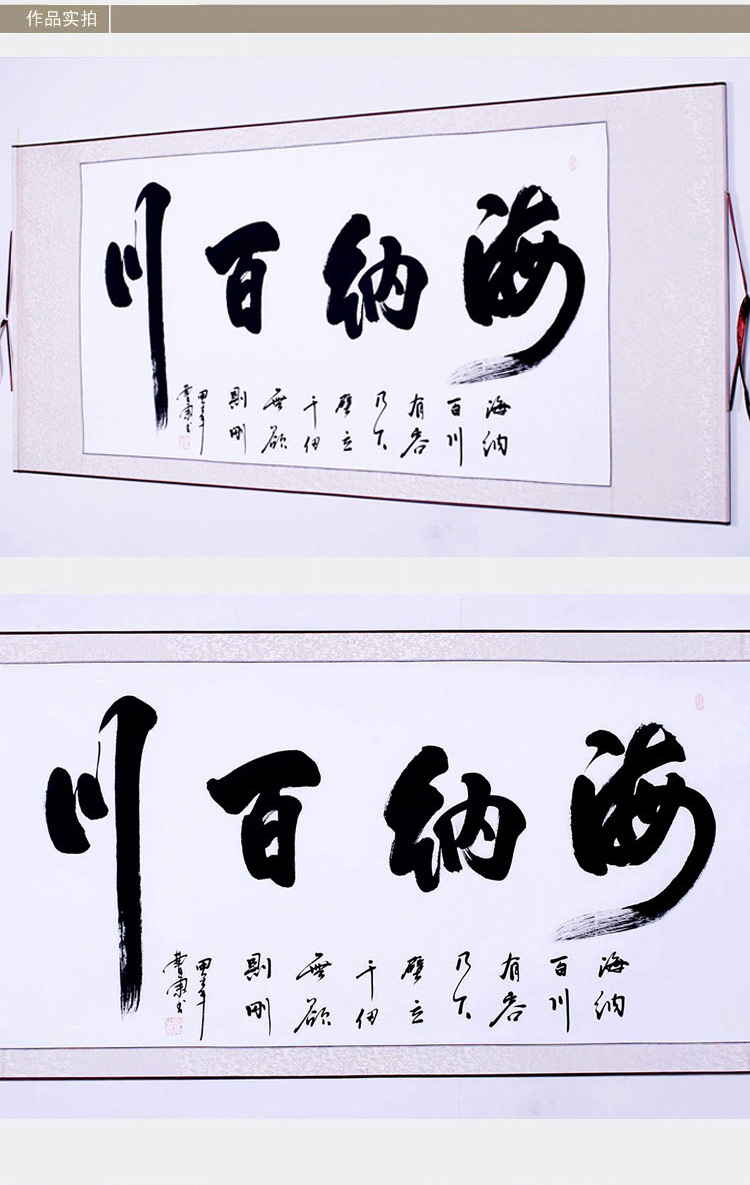 作品实拍
海纳百川
海纳
百川
有容
乃大
壁立
千仞
無欲
則刚
海纳百川
海纳
百川
有容
乃大
壁立
千仞
無欲
則刚